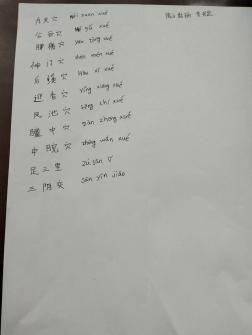 穴 nèi xuán xué
合谷穴 hé gǔ xué
腰痛穴 yāo tòng xué
神门穴 shén mén xué
后溪穴 hòu xī xué
迎香穴 yíng xiāng xué
风池穴 fēng chí xué
膻中穴 tán zhōng xué
中脘穴 zhōng wǎn xué
足三里 zú sān lǐ
三阴交 sān yīn jiāo